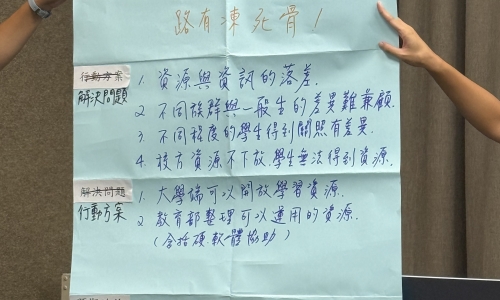 路有凍死骨！
行動方案
解決問題
1. 資源與資訊的落差.
2. 不同族群與一般生的差異難兼顧
3. 不同程度的學生得到關照有差異.
4. 校方資源不下放.學生無法得到資源.
解決問題
行動方案
1. 大學端可以開放學習資源.
2 教育部整理可以運用的資源.
(含括硬.軟體協助)